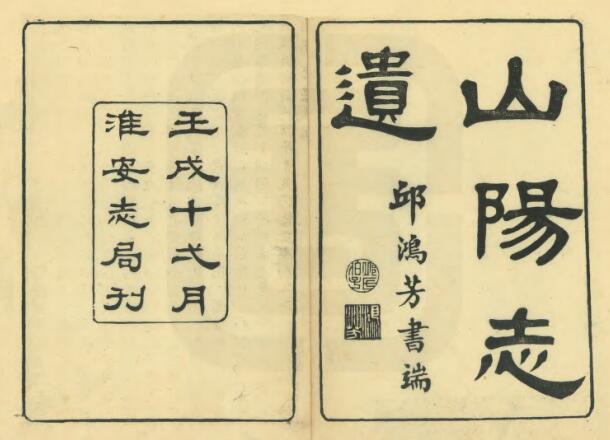 山陽志
遺
邱鴻芳書端
壬戌十弌月
淮安志局刊